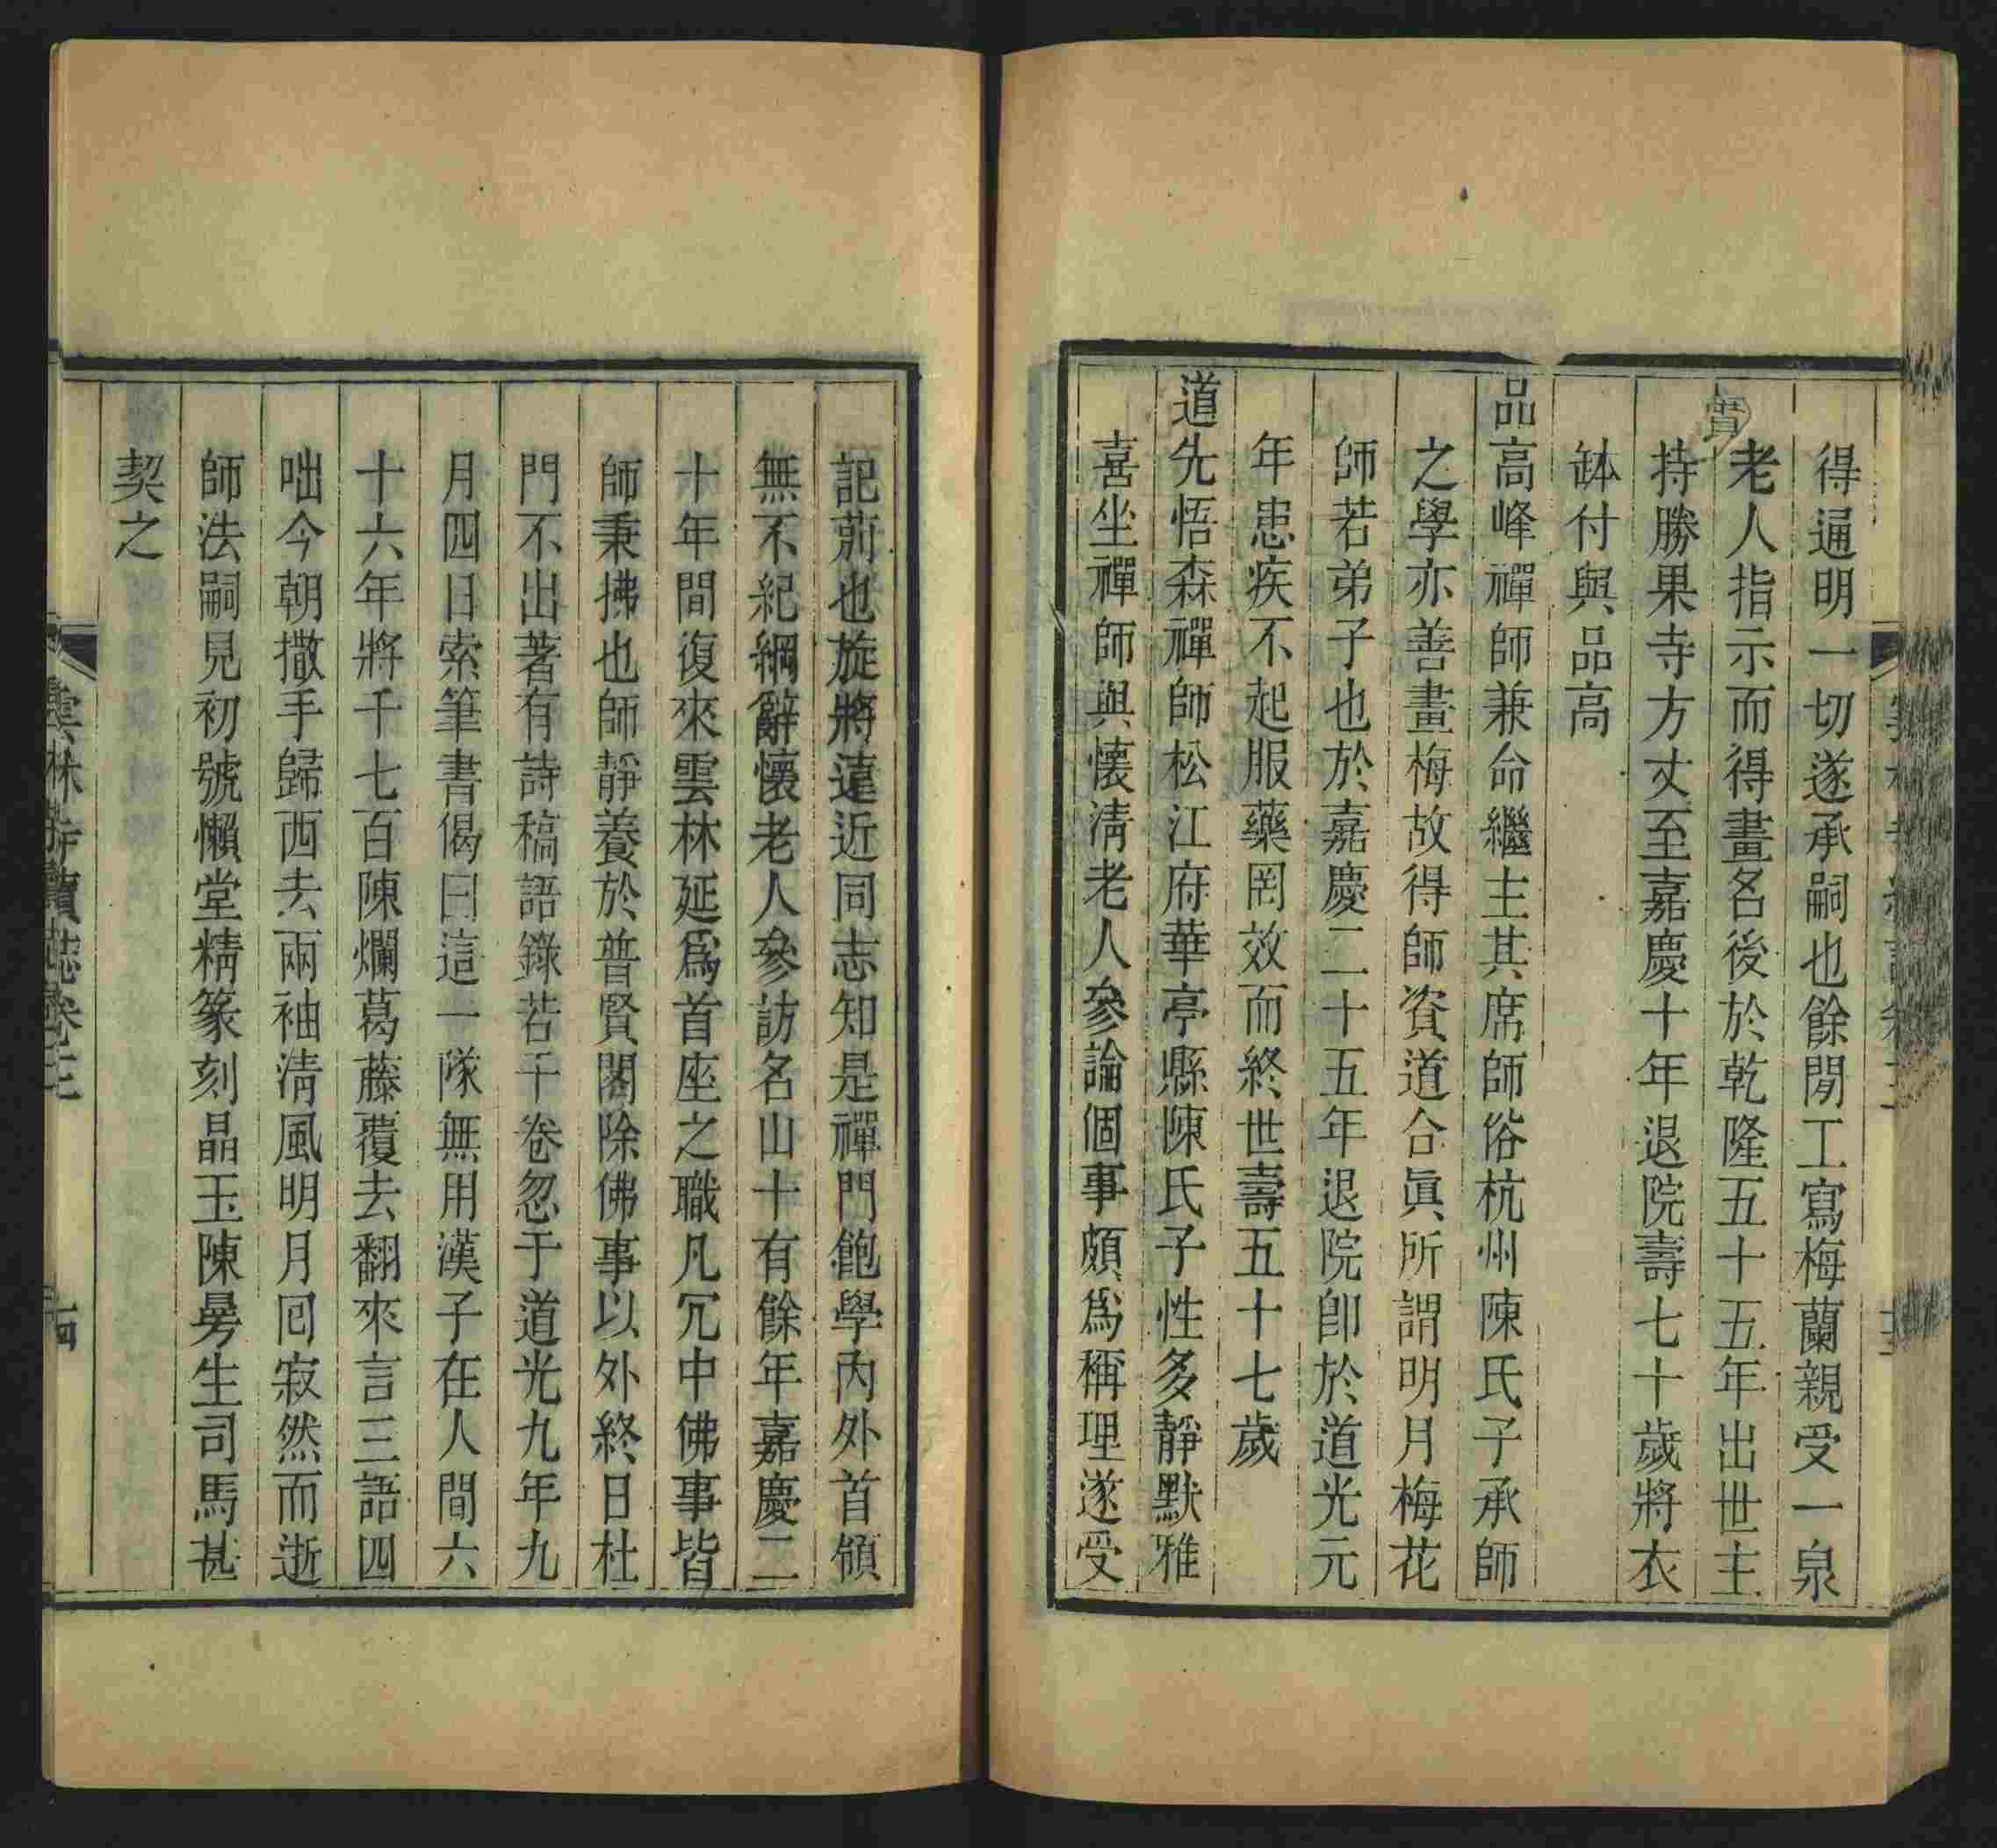 得通明一切遂承嗣也餘閒工寫梅蘭親受一泉
老人指示而得畫名後於乾隆五十五年出世主
持勝果寺方丈至嘉慶十年退院壽七十歲將衣
缽付與品高
品高峰禪師兼命繼主其席師俗杭州陳氏子承師
之學亦善畫梅故得師資道合眞所謂明月梅花
師若弟子也於嘉慶二十五年退院卽於道光元
年患疾不起服藥罔效而終世壽五十七歲
道先悟森禪師松江府華亭縣陳氏子性多靜默雅
喜坐禪師與懷淸老人參論個事頗爲稱理遂受
記莂也旋將遠近同志知是禪門飽學內外首領
無不紀綱辭懷老人參訪名山十有餘年嘉慶二
十年間復來雲林延爲首座之職凡冗中佛事皆
師秉拂也師靜養於普賢閣除佛事以外終日杜
門不出著有詩稿語錄若干卷忽于道光九年九
月四日索筆書偈曰這一隊無用漢子在人間六
十六年將千七百陳爛葛藤覆去翻來言三語四
咄今朝撒手歸西去兩袖淸風明月囘寂然而逝
師法嗣見初號懶堂精篆刻晶玉陳曼生司馬甚
契之
雲林寺續誌卷三
十四